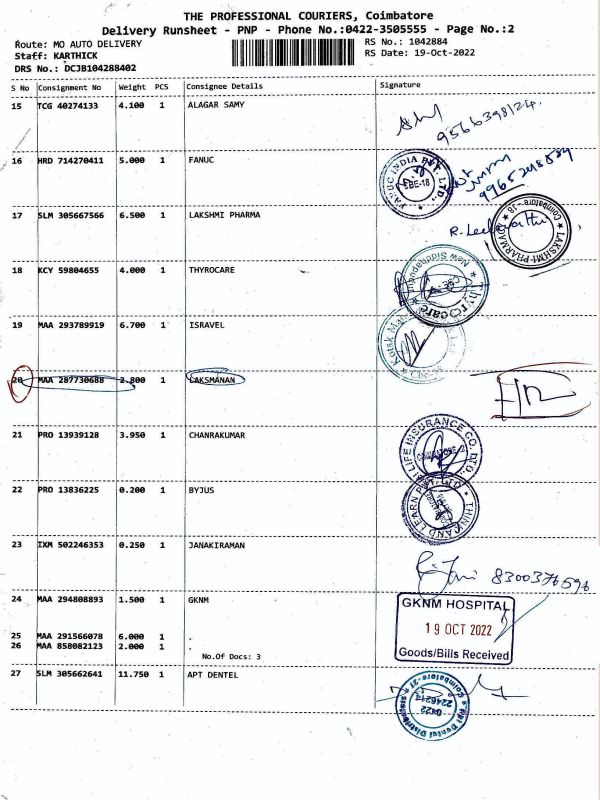 THE PROFESSIONAL COURIERS, Coimbatore
Delivery Runsheet - PNP - Phone No.:0422-3505555 - Page No.:2
Route: MO AUTO DELIVERY RS No.: 1042884
Staff: KARTHICK RS Date: 19-Oct-2022
DRS No.: DCJB104288402
S No Consignment No Weight PCS Consignee Details Signature
15 TCG 40274133 4.100 1 ALAGAR SAMY
9566398124.
16 HRD 714270411 5.000 1 FANUC
FANUC INDIA PVT. LTD.,
CBE-18
17 SLM 305667566 6.500 1 LAKSHMI PHARMA
LAKSHMI PHARMA
Coimbatore - 18
18 KCY 59804655 4.000 1 THYROCARE
Thyrocare
New Sidhapudur
CBE-44
19 MAA 293789919 6.700 1 ISRAVEL
Kotak
20 MAA 287730688 2.800 1 LAKSMANAN
21 PRO 13939128 3.950 1 CHANRAKUMAR
LIFE INSURANCE CO. LTD.
22 PRO 13836225 0.200 1 BYJUS
THINK AND LEARN PVT. LTD
23 IXM 502246353 0.250 1 JANAKIRAMAN
8300376596
24 MAA 294808893 1.500 1 GKNM
GKNM HOSPITAL
19 OCT 2022
Goods/Bills Received
25 MAA 291566078 6.000 1 .
26 MAA 858082123 2.000 1 .
No.Of Docs: 3
27 SLM 305662641 11.750 1 APT DENTEL
Coimbatore-37
0422